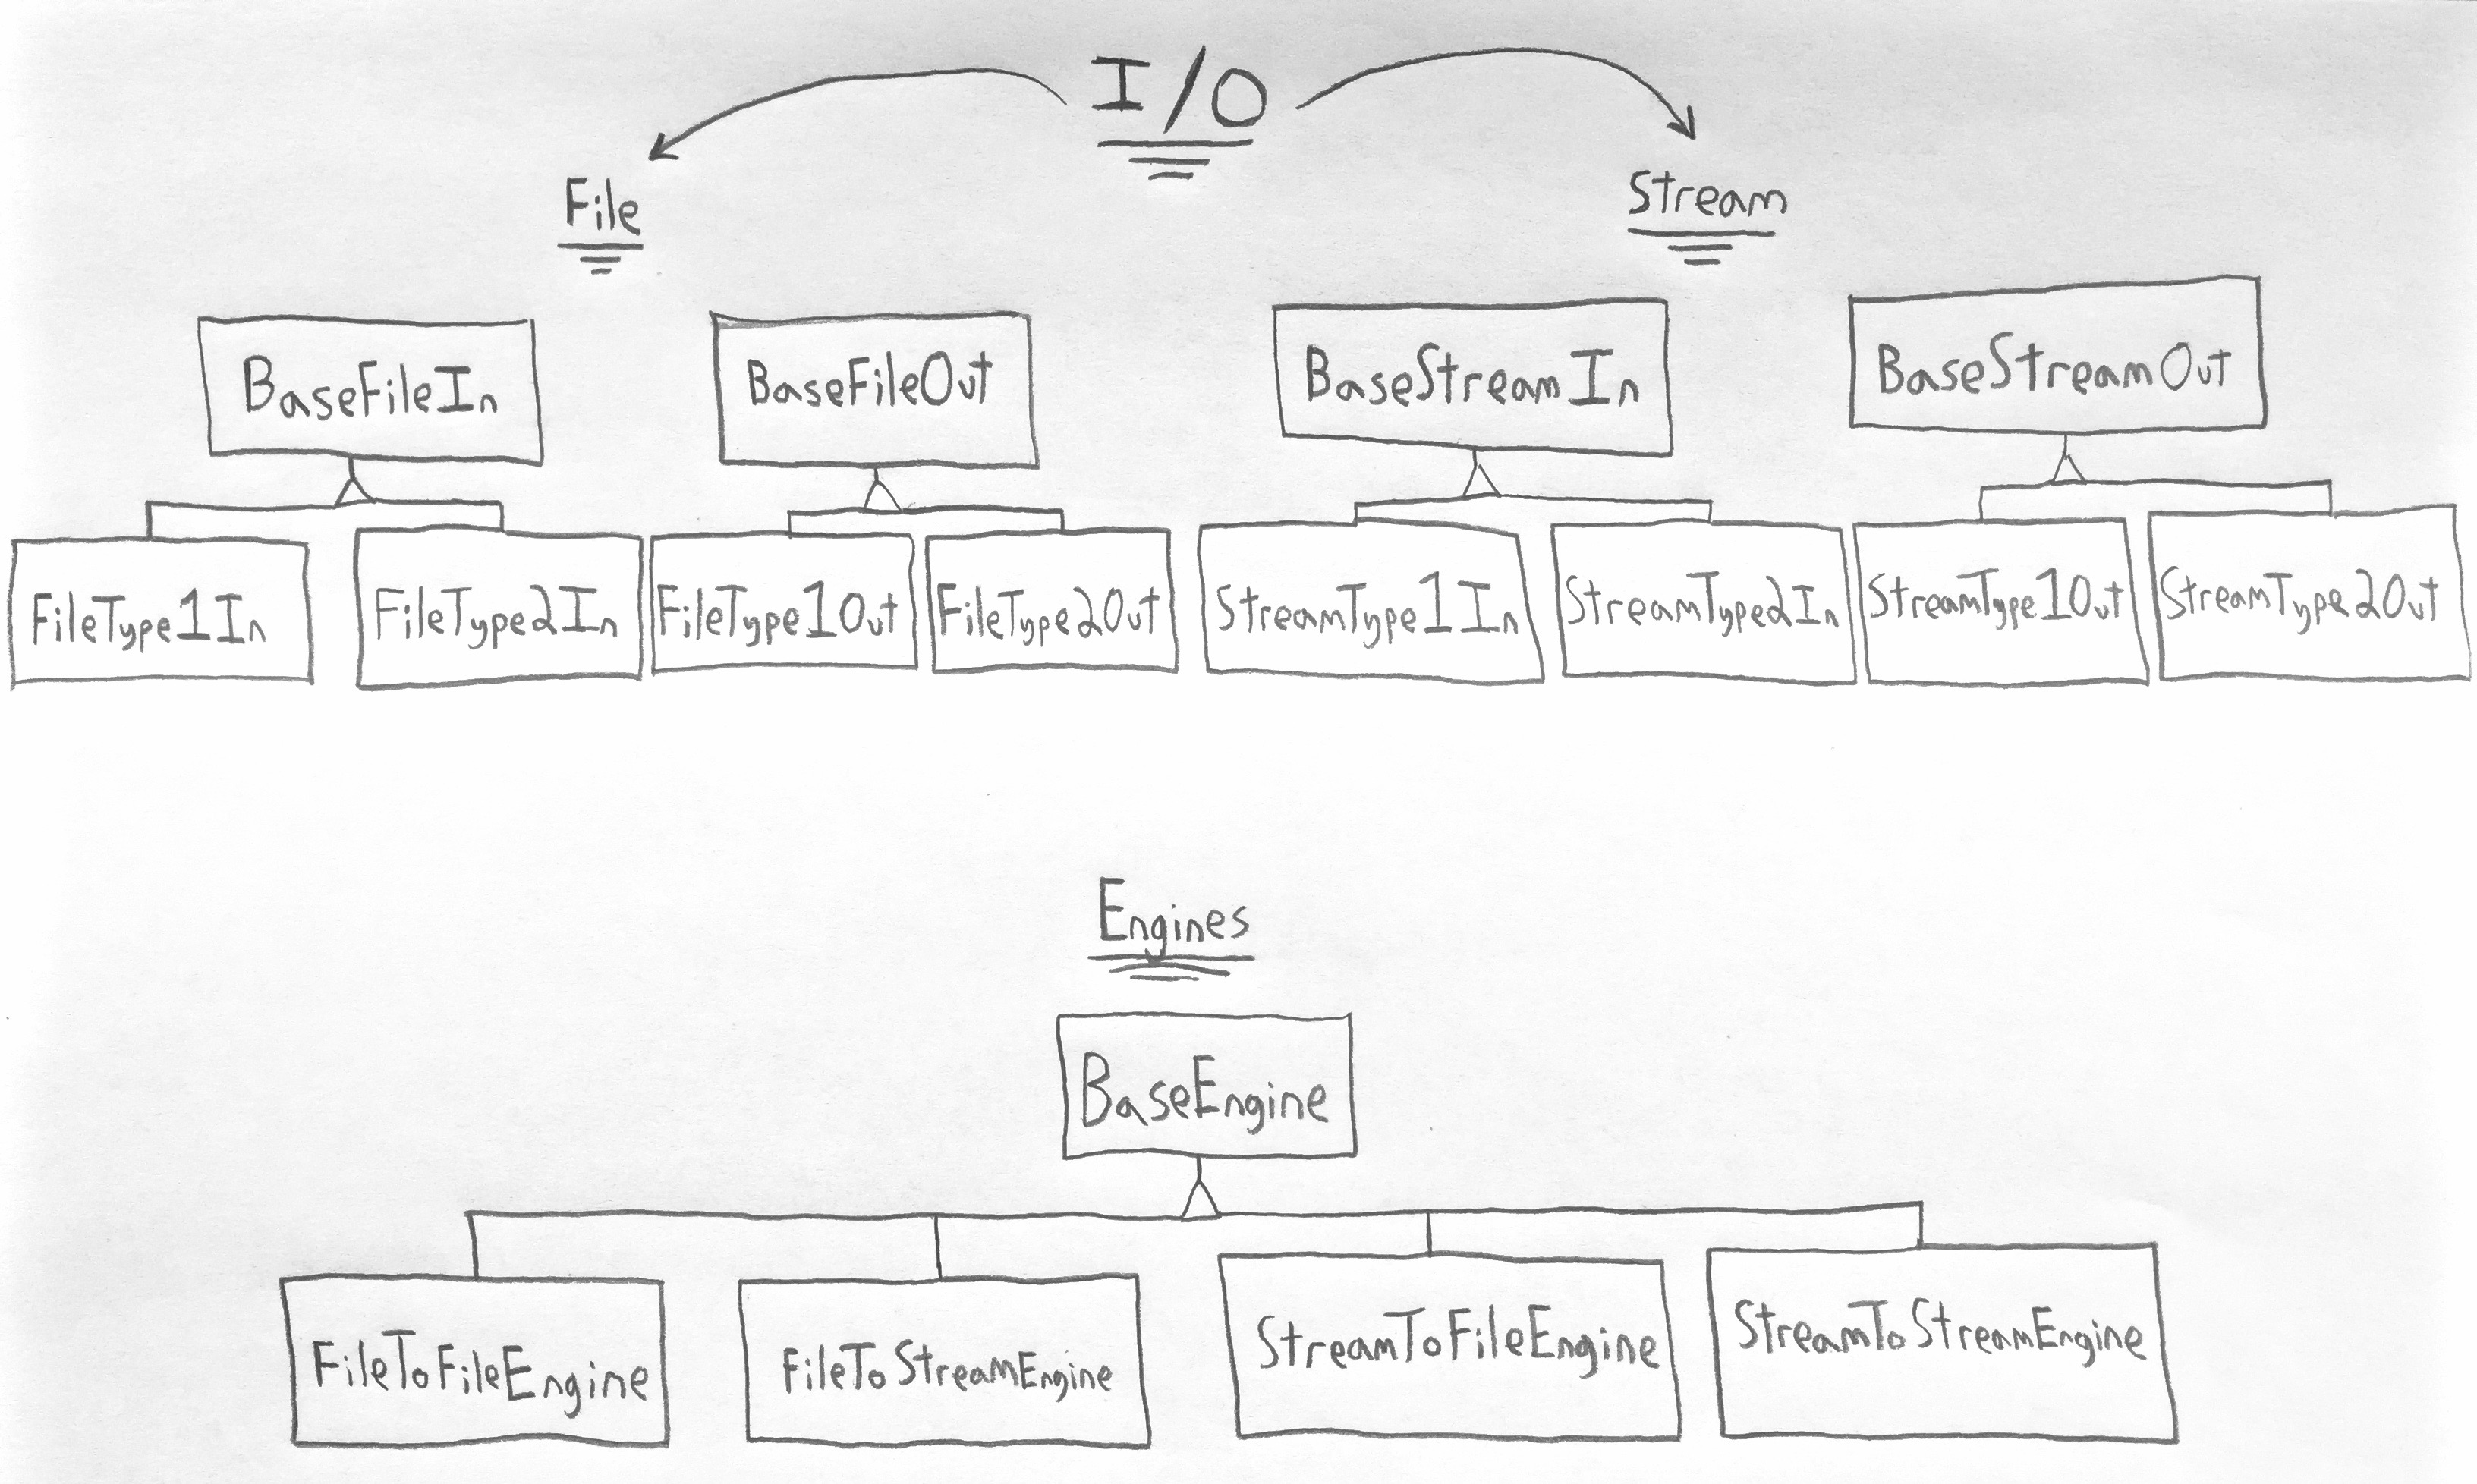 I/O
File
Stream
BaseFileIn
BaseFileOut
BaseStreamIn
BaseStreamOut
FileType1In
FileType2In
FileType1Out
FileType2Out
StreamType1In
StreamType2In
StreamType1Out
StreamType2Out
Engines
BaseEngine
FileToFileEngine
FileToStreamEngine
StreamToFileEngine
StreamToStreamEngine